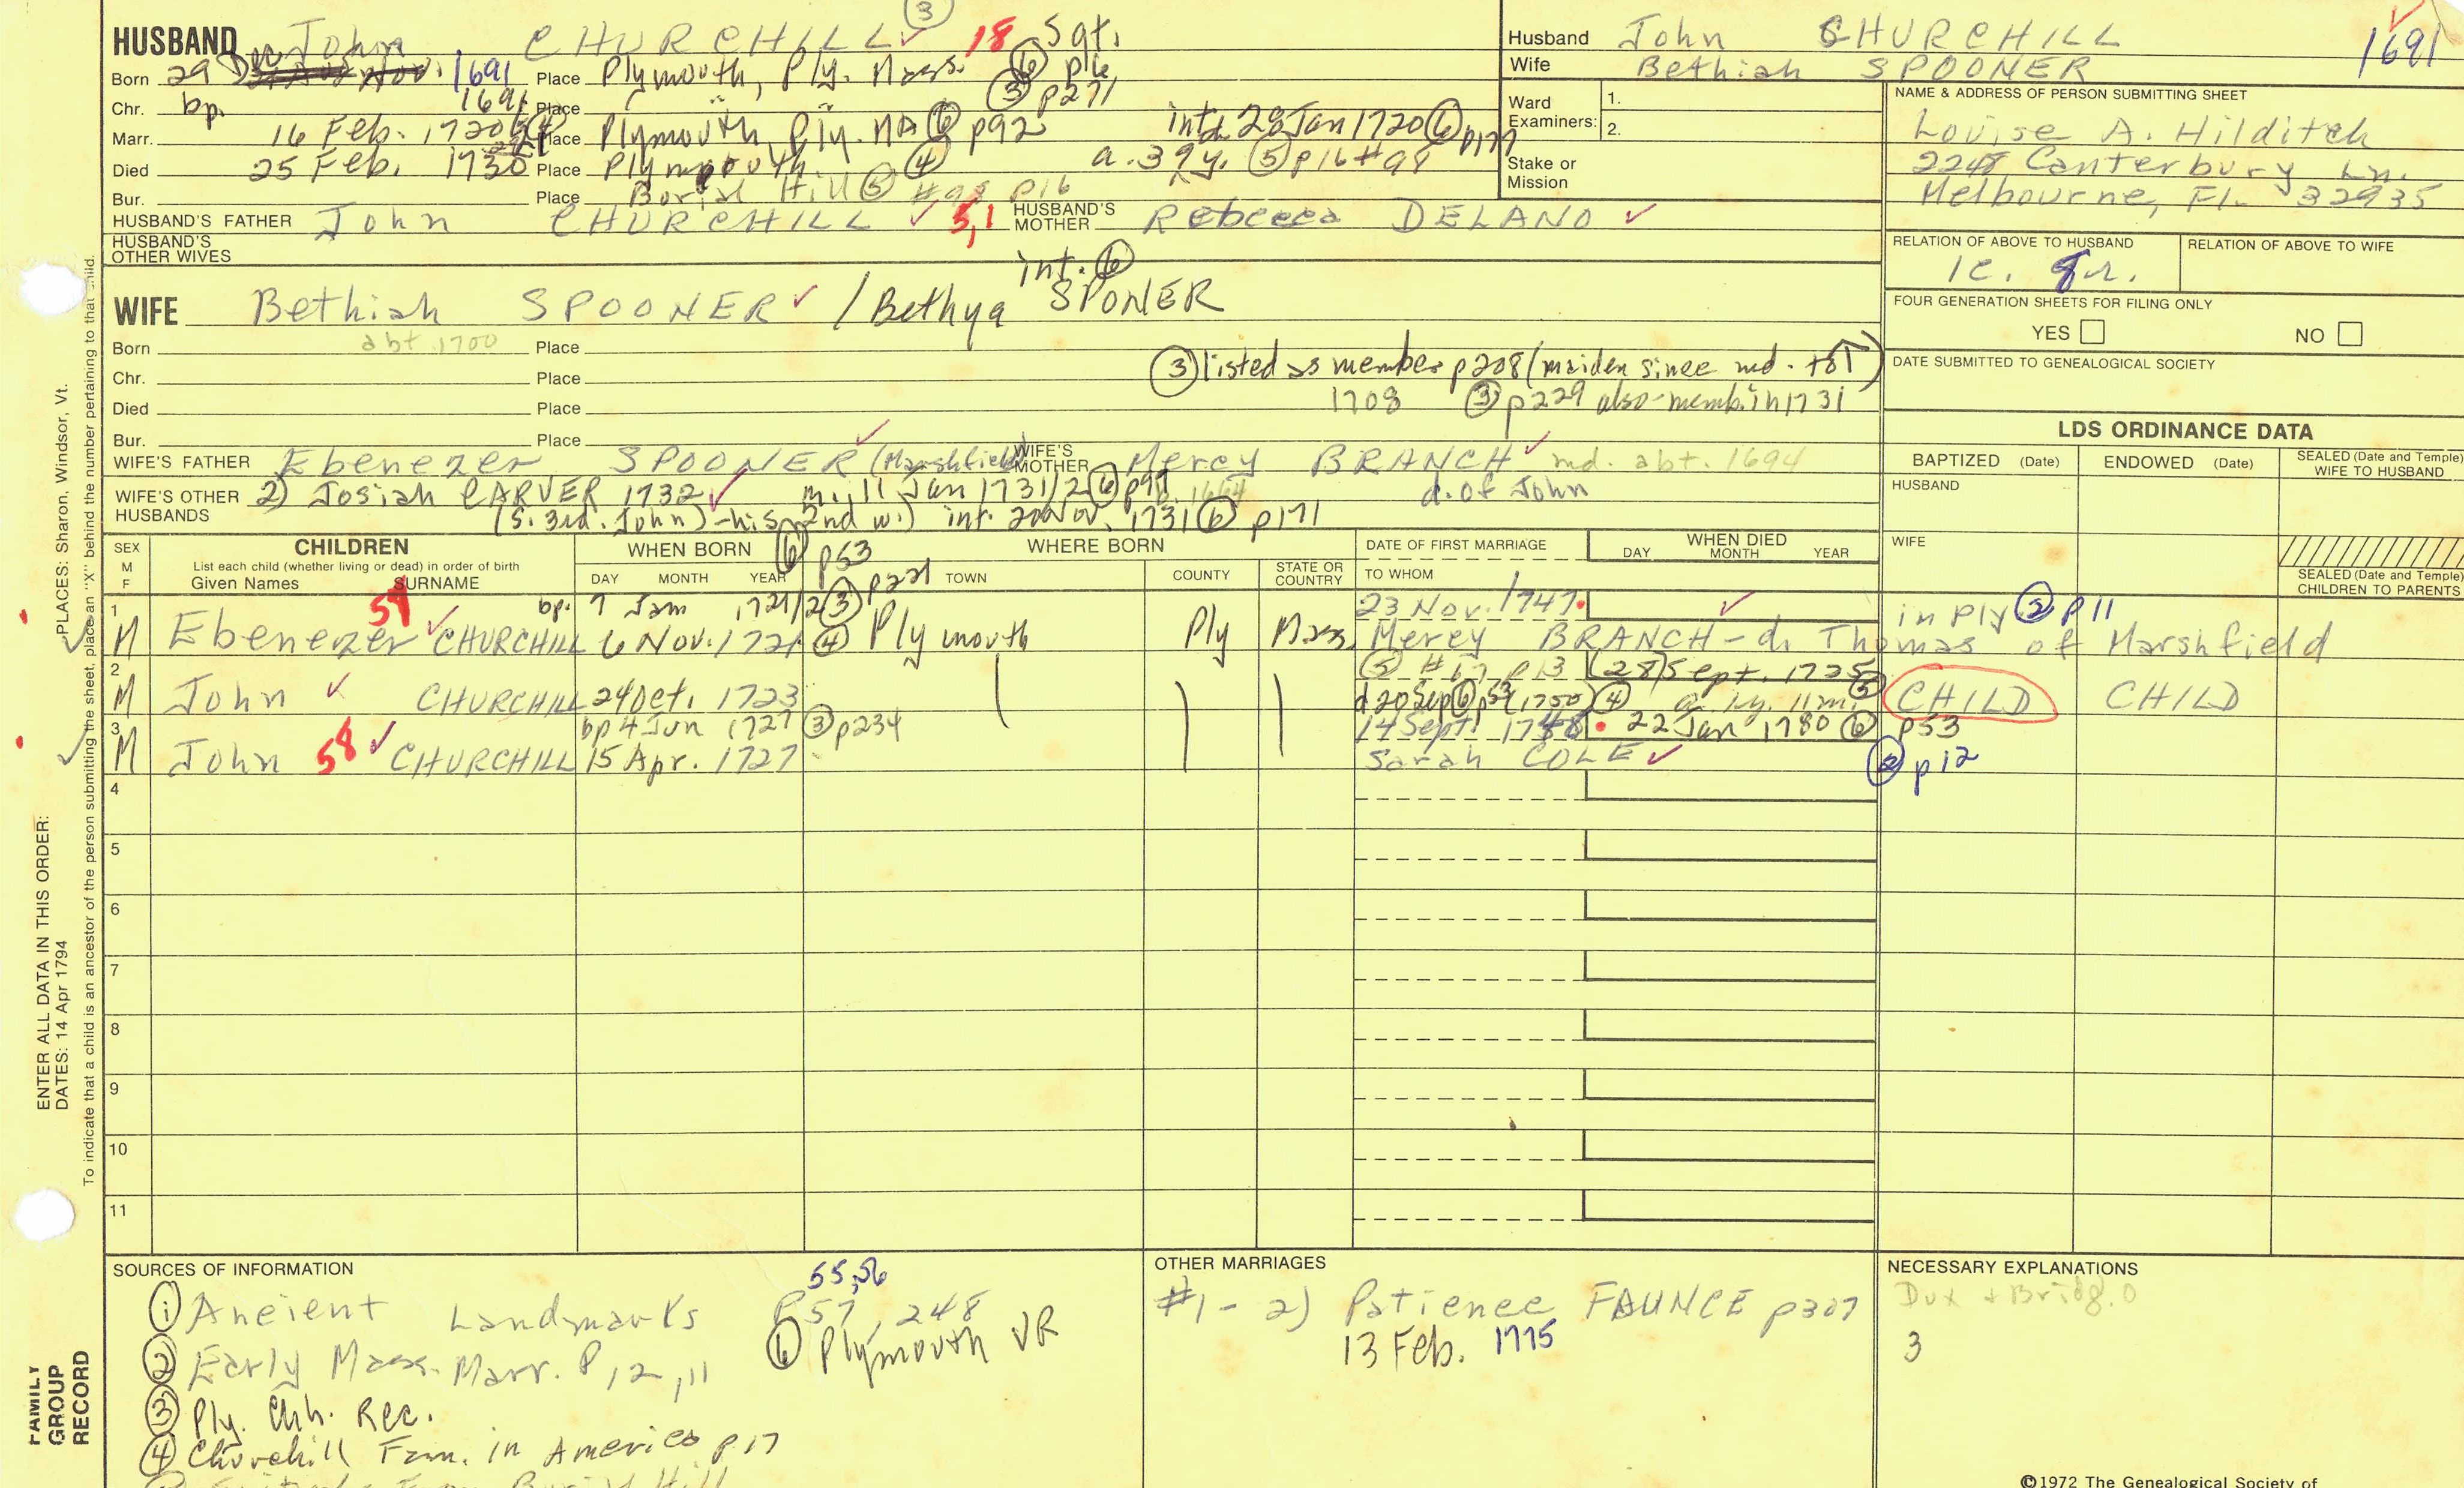 HUSBAND John CHURCHILL ③ 18 Sgt.
Born 29 Dec 1691 Place Plymouth, Ply. Mass. ⑥ p16
Chr. bp. 1691 Place " " ③ p271
Marr. 16 Feb. 1720 Place Plymouth, Ply. MA ⑥ p92 int. 28 Jan 1720 ⑥ p177
Died 25 Feb. 1730 Place Plymouth ④ a. 39y. ⑤ p16 #98
Bur. Place Burial Hill ⑤ #98 p16
HUSBAND'S FATHER John CHURCHILL 5,1 HUSBAND'S MOTHER Rebecca DELANO
HUSBAND'S OTHER WIVES
Husband John CHURCHILL 1691
Wife Bethiah SPOONER
Ward Examiners: 1.
2.
Stake or Mission
NAME & ADDRESS OF PERSON SUBMITTING SHEET
Louise A. Hilditch
2248 Canterbury Ln.
Melbourne, Fl. 32935
RELATION OF ABOVE TO HUSBAND
1c. 8r.
RELATION OF ABOVE TO WIFE
FOUR GENERATION SHEETS FOR FILING ONLY
YES NO
DATE SUBMITTED TO GENEALOGICAL SOCIETY
int. ⑥
WIFE Bethiah SPOONER / Bethya SPONER
Born abt 1700 Place
Chr. Place
Died Place
Bur. Place
③ listed as member p208 (maiden since md. to ↑)
1708 ③ p229 also memb. in 1731
WIFE'S FATHER Ebenezer SPOONER (Marshfield) WIFE'S MOTHER Mercy BRANCH md. abt. 1694
d. of John
WIFE'S OTHER HUSBANDS 2) Josiah CARVER 1732 m. 11 Jan 1731/2 ⑥ p99
(s. 3rd. John) - his 2nd w.) int. 20 Nov. 1731 ⑥ p171
LDS ORDINANCE DATA
BAPTIZED (Date) ENDOWED (Date) SEALED (Date and Temple) WIFE TO HUSBAND
HUSBAND
WIFE
SEALED (Date and Temple) CHILDREN TO PARENTS
SEX M F
CHILDREN
List each child (whether living or dead) in order of birth
Given Names SURNAME
WHEN BORN ⑥ p53
DAY MONTH YEAR
WHERE BORN
③ p221 TOWN COUNTY STATE OR COUNTRY
DATE OF FIRST MARRIAGE
TO WHOM
WHEN DIED
DAY MONTH YEAR
1 bp. 7 Jan 1721/2 ③ 23 Nov. 1747 in Ply ② p11
M Ebenezer 59 CHURCHILL 6 Nov. 1721 ④ Plymouth Ply Mass. Mercy BRANCH - d. Thomas of Marshfield
2 ⑤ #67 p13 (28) Sept. 1725
M John CHURCHILL 24 Oct. 1723 d 20 Sep ⑥ p53 (1750) ④ a. 1y. 11m. ⑤ CHILD CHILD
3 bp 4 Jun 1727 ③ p234 14 Sept. 1748 22 Jan 1780 ⑥ p53
M John 58 CHURCHILL 15 Apr. 1727 Sarah COLE ② p12
4
5
6
7
8
9
10
11
SOURCES OF INFORMATION
55,56
① Ancient Landmarks P57, 248
② Early Mass. Marr. P12, 11
⑥ Plymouth VR
③ Ply. Chh. Rec.
④ Churchill Fam. in America p17
OTHER MARRIAGES
#1 - 2) Patience FAUNCE p307
13 Feb. 1775
NECESSARY EXPLANATIONS
Dux + Bridg. 0
3
©1972 The Genealogical Society of
ENTER ALL DATA IN THIS ORDER:
DATES: 14 Apr 1794 PLACES: Sharon, Windsor, Vt.
To indicate that a child is an ancestor of the person submitting the sheet, place an "X" behind the number pertaining to that child.
FAMILY GROUP RECORD